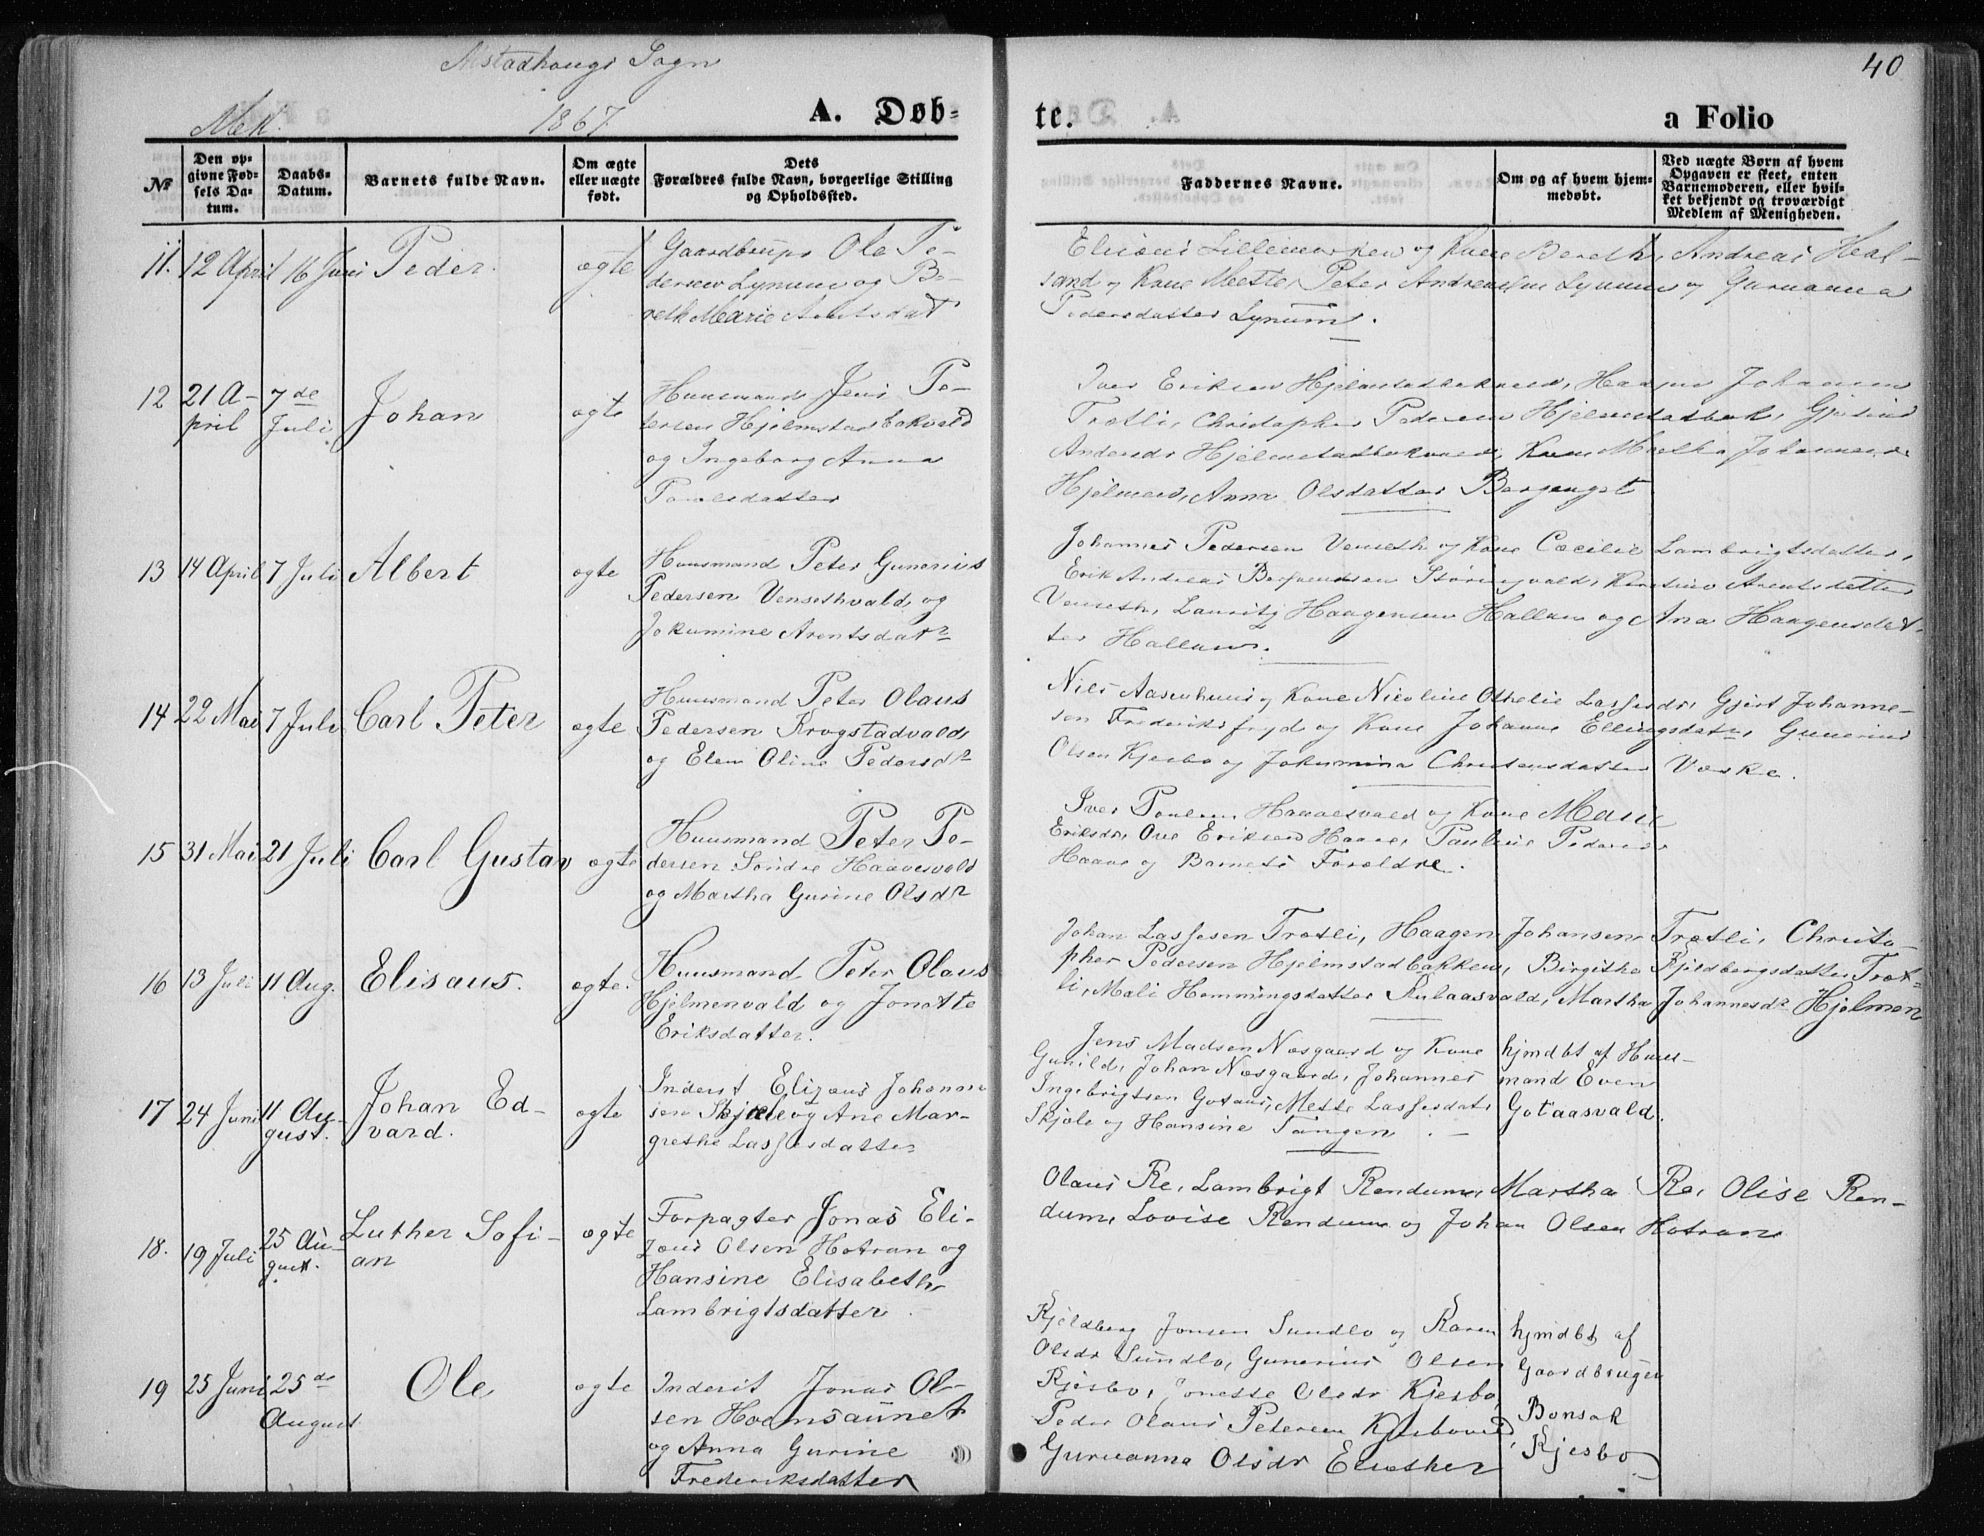 Alstadhougs Sogn
40
Mek. 1867
A. Døb-
te.
a Folio
№
Den op-
givne Fød-
sels Da-
tum.
Daabs-
Datum.
Barnets fulde Navn.
Om ægte
eller uægte
født.
Dets
Forældres fulde Navn, borgerlige Stilling
og Opholdssted.
Faddernes Navne.
Om og af hvem hjem-
medøbt.
Ved uægte Børn af hvem
Opgaven er skeet, enten
Barnemoderen, eller hvil-
ket bekjendt og troværdigt
Medlem af Menigheden.
11. 12 April 16 Juni Peder. ægte
Gaardbruger Ole Pe-
dersen Lynum og Be-
reth Marie Arntsdat
og Kone Bereth, Andreas
og Kone Mette, Peter Andreas Lynum og Gurianna
Pedersdatter Lynum.
12 21 A-
pril 7de
Juli Johan ægte
Huusmand Jens Pe-
tersen Hjelmstadbakvald
og Ingeborg Anna
Paulsdatter
Iver Eriksen Hjelmstadbakvald, Haagen Johansen
Trætli, Christopher Pedersen Hjelmstadbak,
Andersdr Hjelmstadbakvald, Kone Martha Johannesdr
Hjelmen, Anna Olsdatter
13 14 April 7 Juli Albert ægte
Huusmand Peter Gunerius
Pedersen Vensethvald, og
Jokumine Arentsdatr
Johannes Pedersen Venseth og Kone Cæcilie Lambrigtsdatter,
Erik Andreas Kirstine Arentsdatter
Venseth, Lauritz Haagensen Hallan og Ana Haagensdat-
ter Hallan.
14 22 Mai 7 Juli Carl Peter ægte
Huusmand Peter Olaus
Pedersen Krogstadvald,
og Elen Oline Pedersdr
Nils Aasenhuus og Kone Nicoline Othelie Lassesdr, Gjert Johanne-
sen Frederiksfryd og Kone Johanne Ellingsdatr, Gunerius
Olsen Kjesbo og Jokumina Christensdatter Væske.
15 31 Mai 21 Juli Carl Gustav ægte
Huusmand Peter Pe-
dersen Søndre Haavesvald
og Martha Gurine Olsdr
Iver Paulsen Haavesvald og Kone
Eriksdr, Ove Eriksen Haave, Pauline Pedersdr
Haave og Barnets Forældre.
16 13 Juli 11 Aug. Elisæus. ægte.
Huusmand Peter Olaus
Hjelmenvald og Jonette
Eriksdatter.
Johan Lassesen Trætli, Haagen Johansen Trætli, Christo-
pher Pedersen Hjelmstadbakken, Birgithe Kjeldbergsdatter Træt-
li, Mali Hemmingsdatter Rulaasvald, Martha Johannesdr Hjelmen
17 24 Juni 11 Au-
gust. Johan Ed-
vard. ægte
Inderst Elizæus Johanne
sen Skjæle og Ane Mar-
grethe Lassesdatter
Jens Madsen Næsgaard og Kone
Gunild, Johan Næsgaard, Johannes
Ingebrigtsen Gotaas, Mette Lassesdatr
Skjæle og Hansine Tangen.
hjmdbt af Huus-
mand Even
Gotaasvald.
18. 19 Juli 25 Au-
gust. Luther Sofi-
an ægte
Forpagter Jonas Eli-
zæus Olsen Hotran og
Hansine Elisabeth
Lambrigtsdatter.
Olaus Re, Lambrigt Rendum, Martha Re, Olise Ren-
dum, Lovise Rendum og Johan Olsen Hotran
19 25 Juni 25de
August Ole ægte
Inderst Jonas Ol-
sen Hoemsaunet
og Anna Gurine
Frederiksdatter
Kjeldberg Jonsen Sundlo og Karen
Olsdr Sundlo, Gunerius Olsen
Kjesbo, Jonette Olsdr Kjesbo,
Peder Olaus Petersen Kjesbovald,
Gurianna Olsdr
hjmdbt af
Gaardbruger
Bonsak
Kjesbo